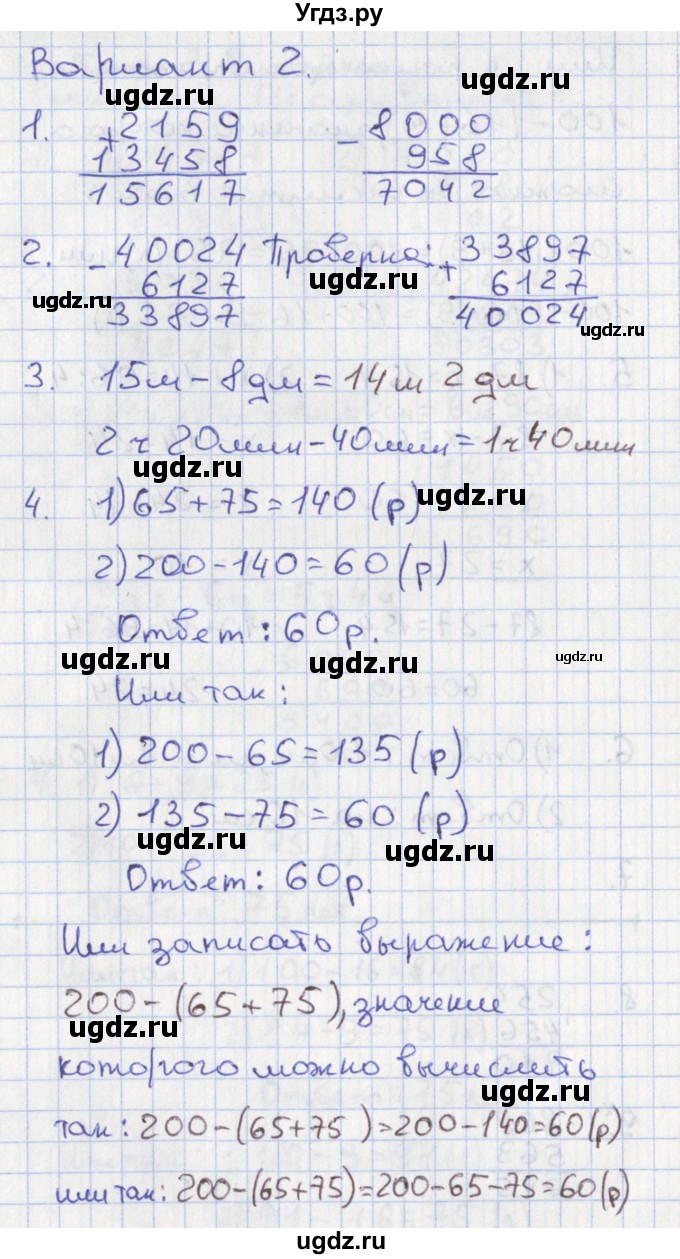 Угдз.ру
Вариант 2.
ugdz.ru ugdz.ru
1. +2159 -8000
13458 958
15617 7042
2. -40024 Проверка: +33897
ugdz.ru 6127 ugdz.ru 6127
33897 40024
ugdz.ru
3. 15м - 8дм = 14м 2дм
2ч 20мин - 40мин = 1ч 40мин
ugdz.ru
4. 1) 65 + 75 = 140 (р) ugdz.ru
2) 200 - 140 = 60 (р)
Ответ: 60р.
ugdz.ru ugdz.ru ugdz.ru
Или так:
1) 200 - 65 = 135 (р)
2) 135 - 75 = 60 (р)
ugdz.ru ugdz.ru
Ответ: 60р.
Или записать выражение:
200 - (65 + 75), значение
ugdz.ru
которого можно вычислить
ugdz.ru
так: 200 - (65 + 75) = 200 - 140 = 60 (р)
или так: 200 - (65 + 75) = 200 - 65 - 75 = 60 (р)
ugdz.ru ugdz.ru